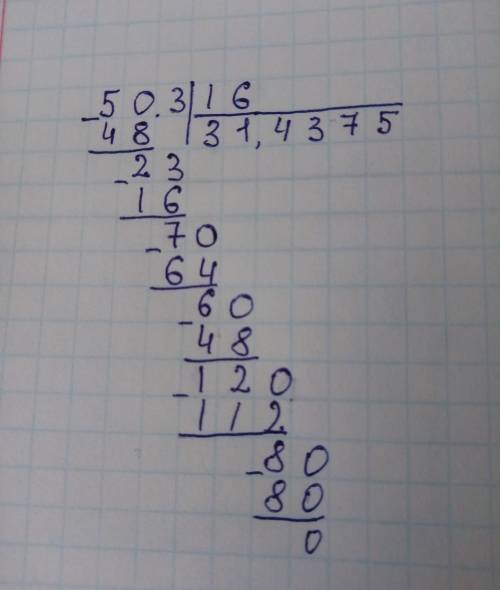 -50.3|16
48 31,4375
-23
16
-70
64
-60
48
-120
112
-80
80
0